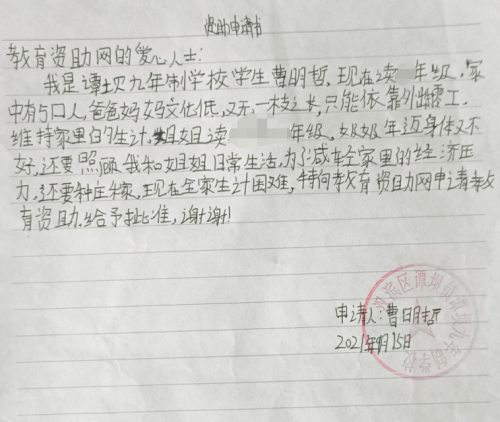 资助申请书
教育资助网的爱心人士:
我是谭坝九年制学校学生曹明哲,现在读 年级.家
中有5口人,爸爸妈妈文化低,又无一技之长,只能依靠外出零工
维持家里的生计.姐姐读 年级,奶奶年迈身体又不
好,还要照顾我和姐姐日常生活,为了减轻家里的经济压
力,还要种庄稼,现在全家生计困难,特向教育资助网申请教
育资助.给予批准,谢谢!
申请人:曹明哲
2021年9月15日
滨区谭坝 九年制学校